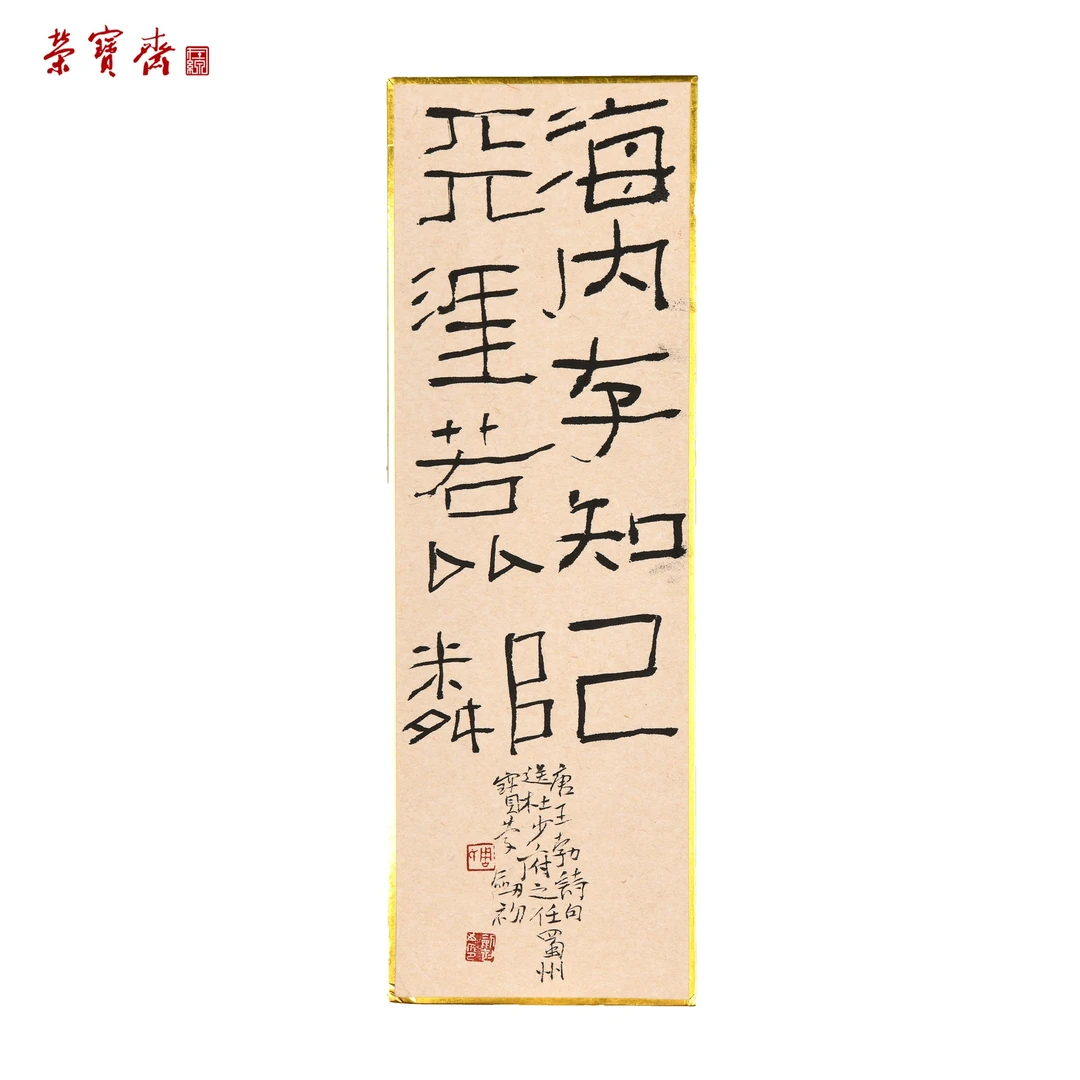 榮寶齋
海内存知己
天涯若比鄰
唐王勃詩句
送杜少府之任蜀州